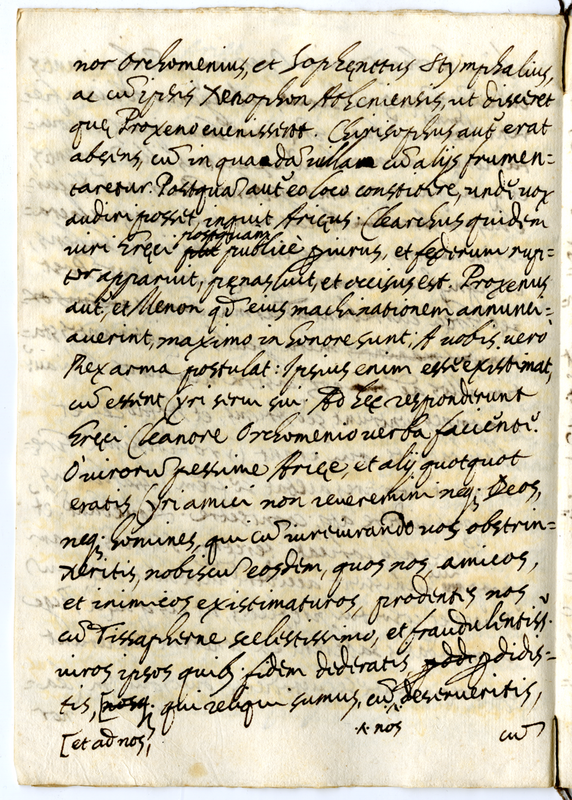 nor Orchomenius, et Sophęnettus Stymphalius,
ac cũ ipsis Xenophon Atheniensis, ut disceret
quę Proxeno evenissent. Chirisophus aut̃ erat
absens, cũ in quadã cũ alijs frumen=
taretur. Postquã aut̃ eo loco constitere, undẽ vox
audiri posset, inquit Arięus: Clearchus quidem
viri Gręci postquam publicè piurus, et fęderum rup=
tor apparuit, pęnas luit, et occisus est. Proxenus
aut̃, et Menon qđ eius machinationem annunci=
averint, maximo in honore sunt: A vobis vero
Rex arma postulat: Ipsius enim esse existimat,
cũ essent Cyri servi sui. Ad hęc responderunt
Gręci Cleanore Orchomenio verba faciẽntẽ.
O virorũ pessime Arięe, et alij quotquot
eratis Cyri amici non reveremini neq; Deos,
neq; homines, qui cũ iureiurando vos obstrin=
xeritis, nobiscũ eosdem, quos nos, amicos,
et inimicos existimaturos, prodentis nos
cũ Tissapherne scelestissimo, et fraudulentiss.
viros ipsos quib; fidem dideratis pdidis=
tis, [ qui reliqui sumus, cũ deserueritis,
[et ad nos, ·^· nos
cũ